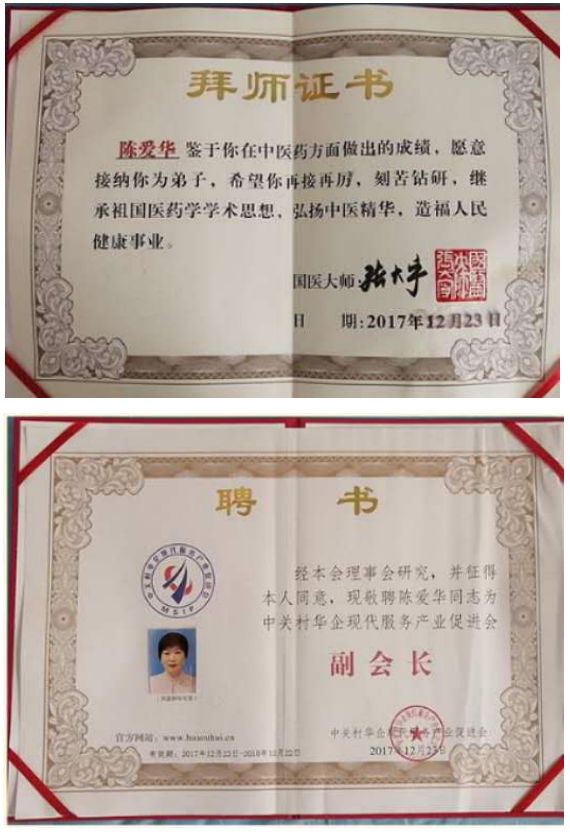 拜师证书
陈爱华 鉴于你在中医药方面做出的成绩，愿意
接纳你为弟子，希望你再接再厉，刻苦钻研，继
承祖国医药学学术思想，弘扬中医精华，造福人民
健康事业。
国医大师：张大宁
日 期：2017年12月23日
聘 书
MSIP
经本会理事会研究，并征得
本人同意，现敬聘陈爱华同志为
中关村华企现代服务产业促进会
副会长
官方网站：www.huaxuhui.cn
有效期：2017年12月23日-2018年12月22日
中关村华企现代服务产业促进会
2017年12月23日